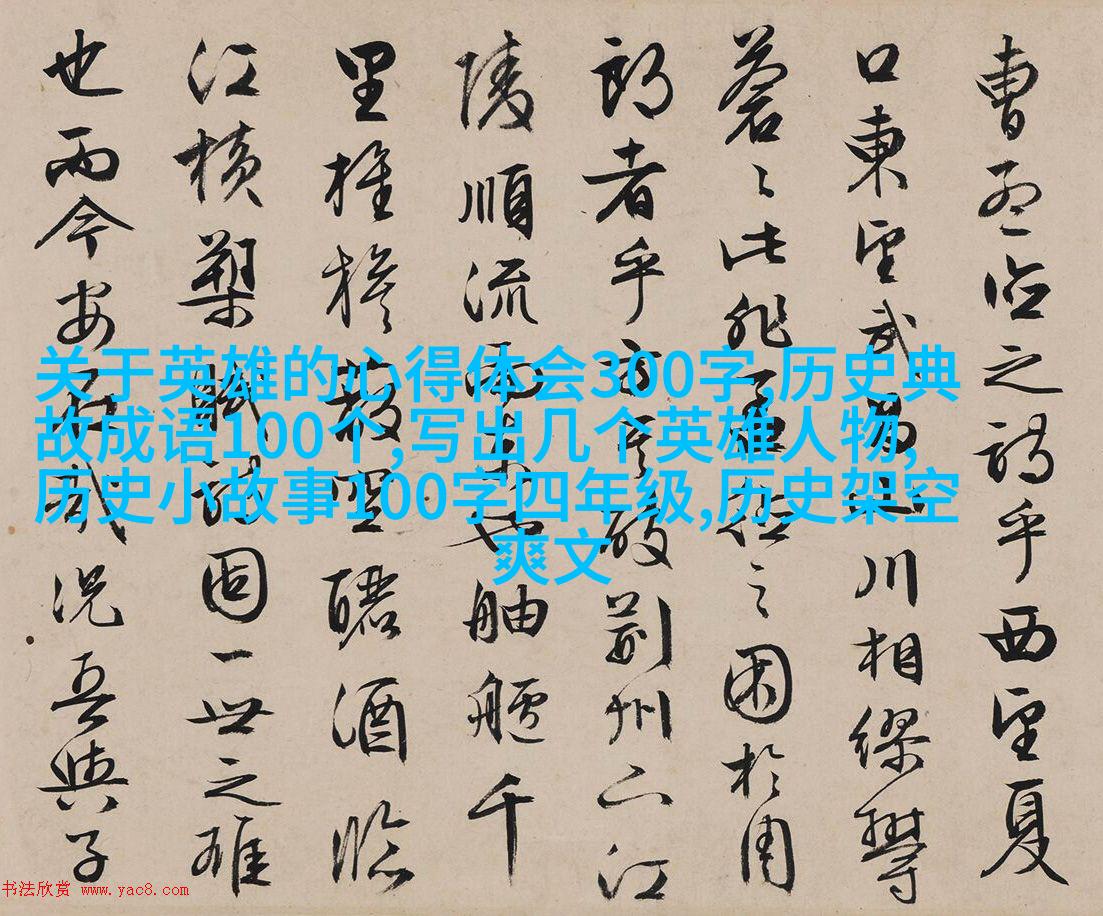 曹孟德之詩乎西望夏
口東望武昌山川相繆鬱
蒼〻此非孟德之困於周
郎者乎方其破荊州下江
陵順流而東也舳艫千
里旌旗蔽空釃酒臨
江橫槊賦詩固一世之雄
也而今安在哉況吾與子
关于英雄的心得体会300字,历史典
故成语100个,写出几个英雄人物,
历史小故事100字四年级,历史架空
爽文
书法欣赏 www.yac8.com